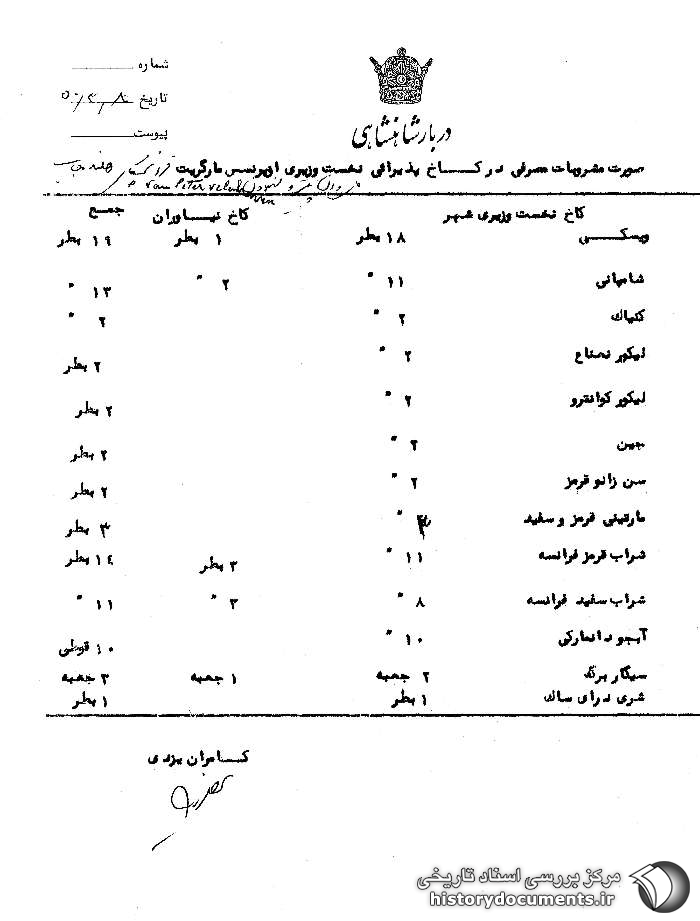 شماره
تاریخ ۵۰/۳/۸
پیوست
دربار شاهنشاهی
صورت مشروبات مصرفی در کاخ پذیرائی نخست وزیری اوپرنسس مارگریت
van
کاخ نخست وزیری شهر کاخ نیاوران جمع
ویسکی ۱۸ بطر ۱ بطر ۱۹ بطر
شامپانی ۱۱ " ۲ " ۱۳ "
کنیاک ۲ " ۲ "
لیکور نعناع ۲ " ۲ بطر
لیکور کوانترو ۲ " ۲ بطر
جین ۲ " ۲ بطر
سن زانو قرمز ۲ " ۲ بطر
مارتینی قرمز و سفید ۳ " ۳ بطر
شراب قرمز فرانسه ۱۱ " ۳ بطر ۱۴ بطر
شراب سفید فرانسه ۸ " ۳ " ۱۱ "
آبجو دانمارکی ۱۰ " ۱۰ قوطی
سیگار برگ ۲ جعبه ۱ جعبه ۳ جعبه
شری درای ساک ۱ بطر ۱ بطر
کامران یزدی
مرکز بررسی اسناد تاریخی
historydocuments.ir